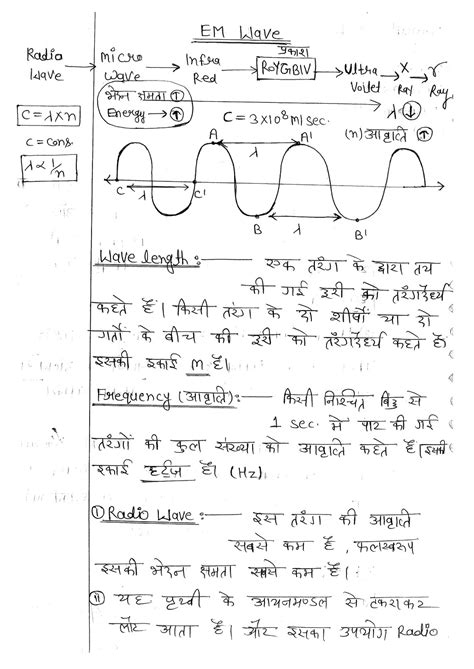 EM Wave
प्रकाश
Radio Wave → Micro Wave → Infra Red → ROYGBIV → Ultra Violet → X Ray → γ Ray
भेदन क्षमता ↑
Energy → ↑
λ ↓
C = λ×n
C = 3×10⁸ m/sec.
(n) आवृत्ति ↑
C = Cons.
λ ∝ 1/n
A λ A'
C λ C'
B λ B'
Wave length :- एक तरंग के द्वारा तय
की गई दूरी को तरंगदैर्ध्य
कहते हैं। किसी तरंग के दो शीर्षों या दो
गर्तों के बीच की दूरी को तरंगदैर्ध्य कहते हैं।
इसकी इकाई m है।
Frequency (आवृत्ति):- किसी निश्चित बिंदु से
1 sec. में पार की गई
तरंगों की कुल संख्या को आवृत्ति कहते हैं। इसकी
इकाई हर्ट्ज है। (Hz)
① Radio Wave :- इस तरंग की आवृत्ति
सबसे कम है, फलस्वरूप
इसकी भेदन क्षमता सबसे कम है।
⑪ यह पृथ्वी के आयनमण्डल से टकराकर
लौट आता है। और इसका उपयोग Radio